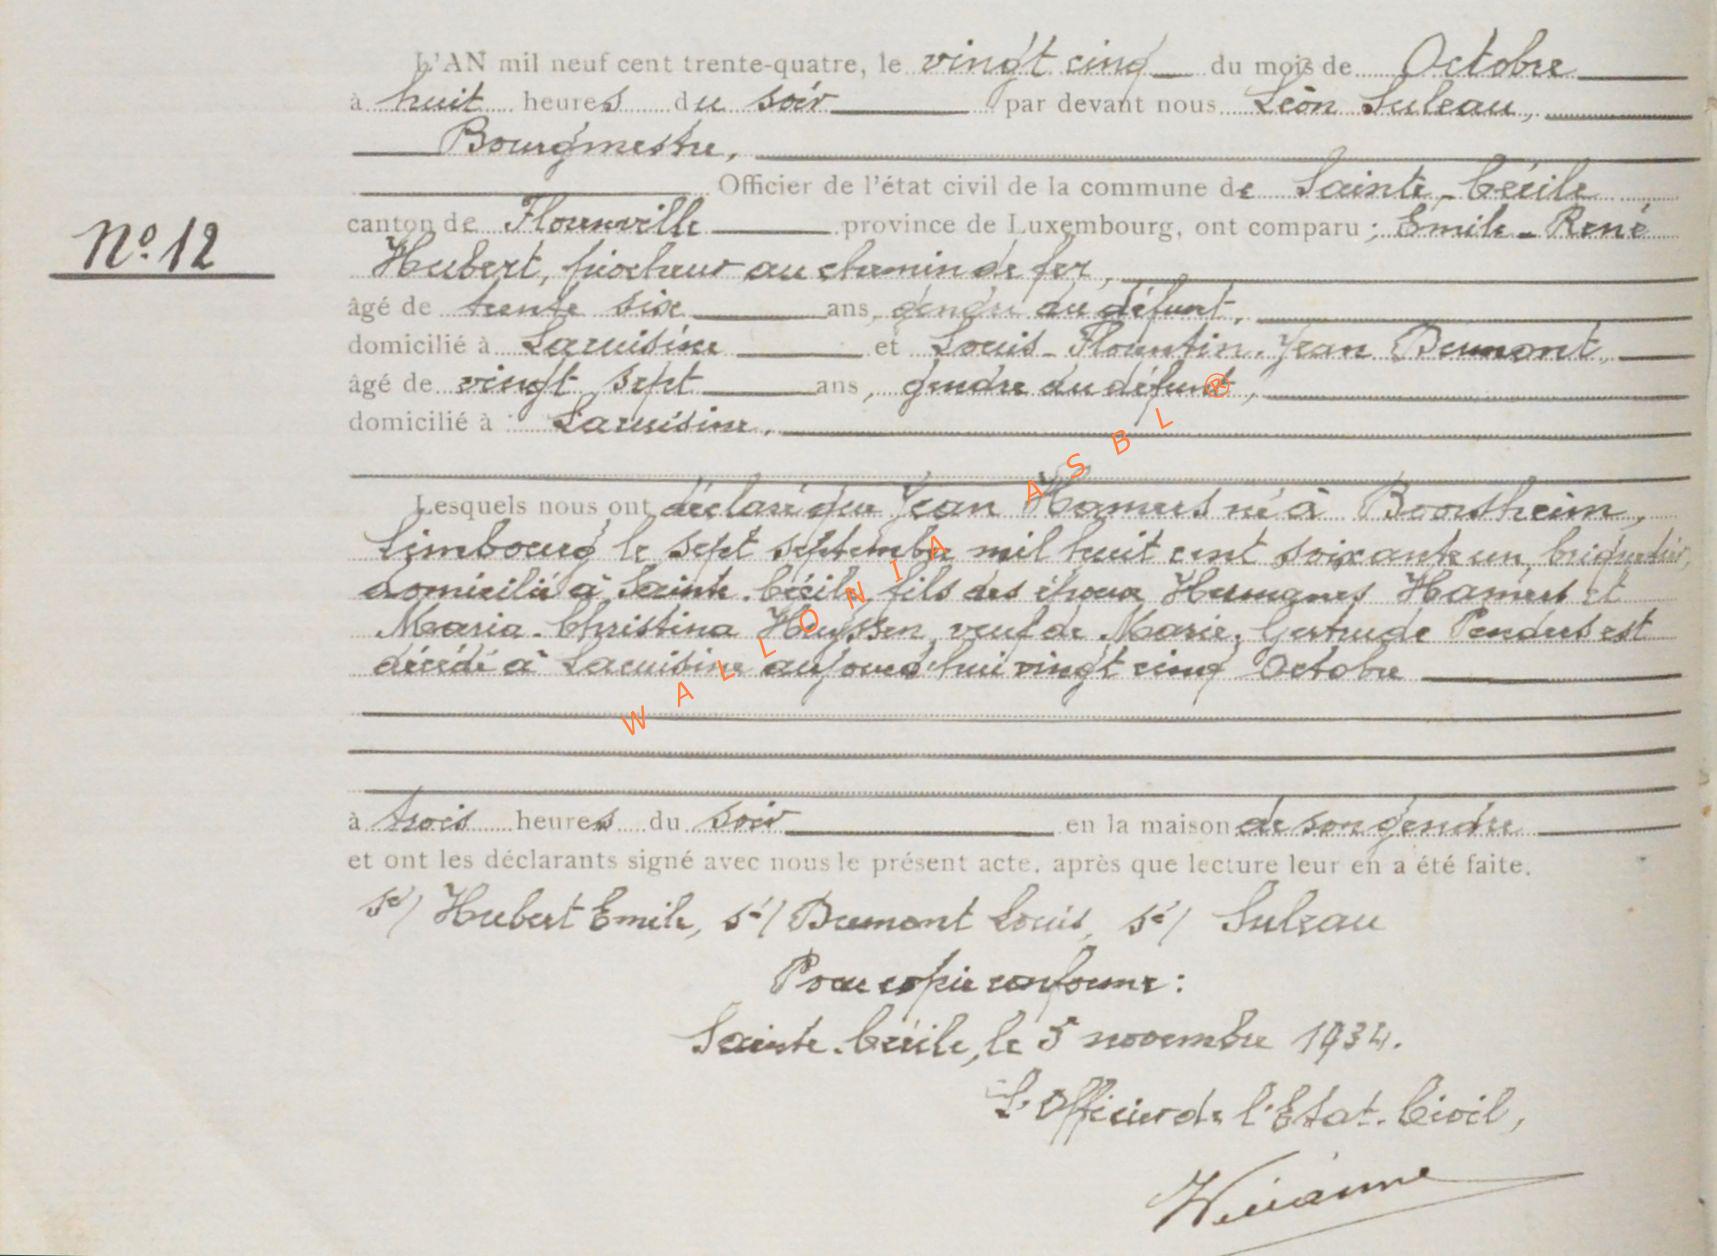 L'AN mil neuf cent trente-quatre, le vingt cinq du mois de Octobre
à huit heures du soir par devant nous Léon Suleau,
Bourgmestre,
Officier de l'état civil de la commune de Sainte-Cécile
N° 12
canton de Florenville province de Luxembourg, ont comparu ; Emile-René
Hubert, piocheur au chemin de fer,
âgé de trente six ans, gendre du défunt,
domicilié à Lacuisine et Louis-Florentin-Jean Dumont,
âgé de vingt sept ans, gendre du défunt,
domicilié à Lacuisine,
Lesquels nous ont déclaré que Jean Hamers né à Boorsheim,
Limbourg le sept septembre mil huit cent soixante un, briquetier,
domicilié à Sainte-Cécile, fils des époux Hermanes Hamers et
Maria-Christina Huyssen, veuf de Marie-Gertrude Penders est
décédé à Lacuisine aujourd'hui vingt cinq Octobre
à trois heures du soir en la maison de son gendre
et ont les déclarants signé avec nous le présent acte, après que lecture leur en a été faite.
sé/ Hubert Emile, sé/ Dumont Louis, sé/ Suleau
Pour copie conforme :
Sainte-Cécile, le 5 novembre 1934.
L'Officier de l'Etat-Civil,
WALLONIA ASBL ®